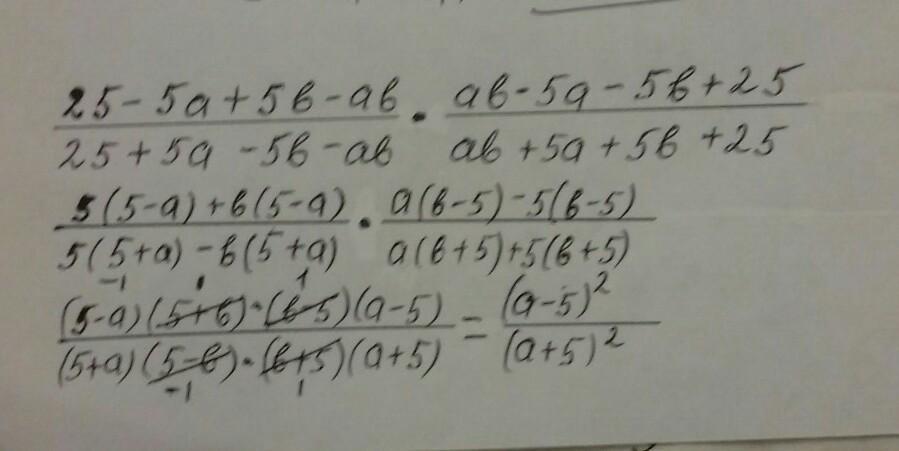 25-5a+5b-ab / 25+5a-5b-ab · ab-5a-5b+25 / ab+5a+5b+25
5(5-a)+b(5-a) / 5(5+a)-b(5+a) · a(b-5)-5(b-5) / a(b+5)+5(b+5)
-1 1 1
(5-a)(5+b)·(b-5)(a-5) / (5+a)(5-b)·(b+5)(a+5) = (a-5)² / (a+5)²
-1 1